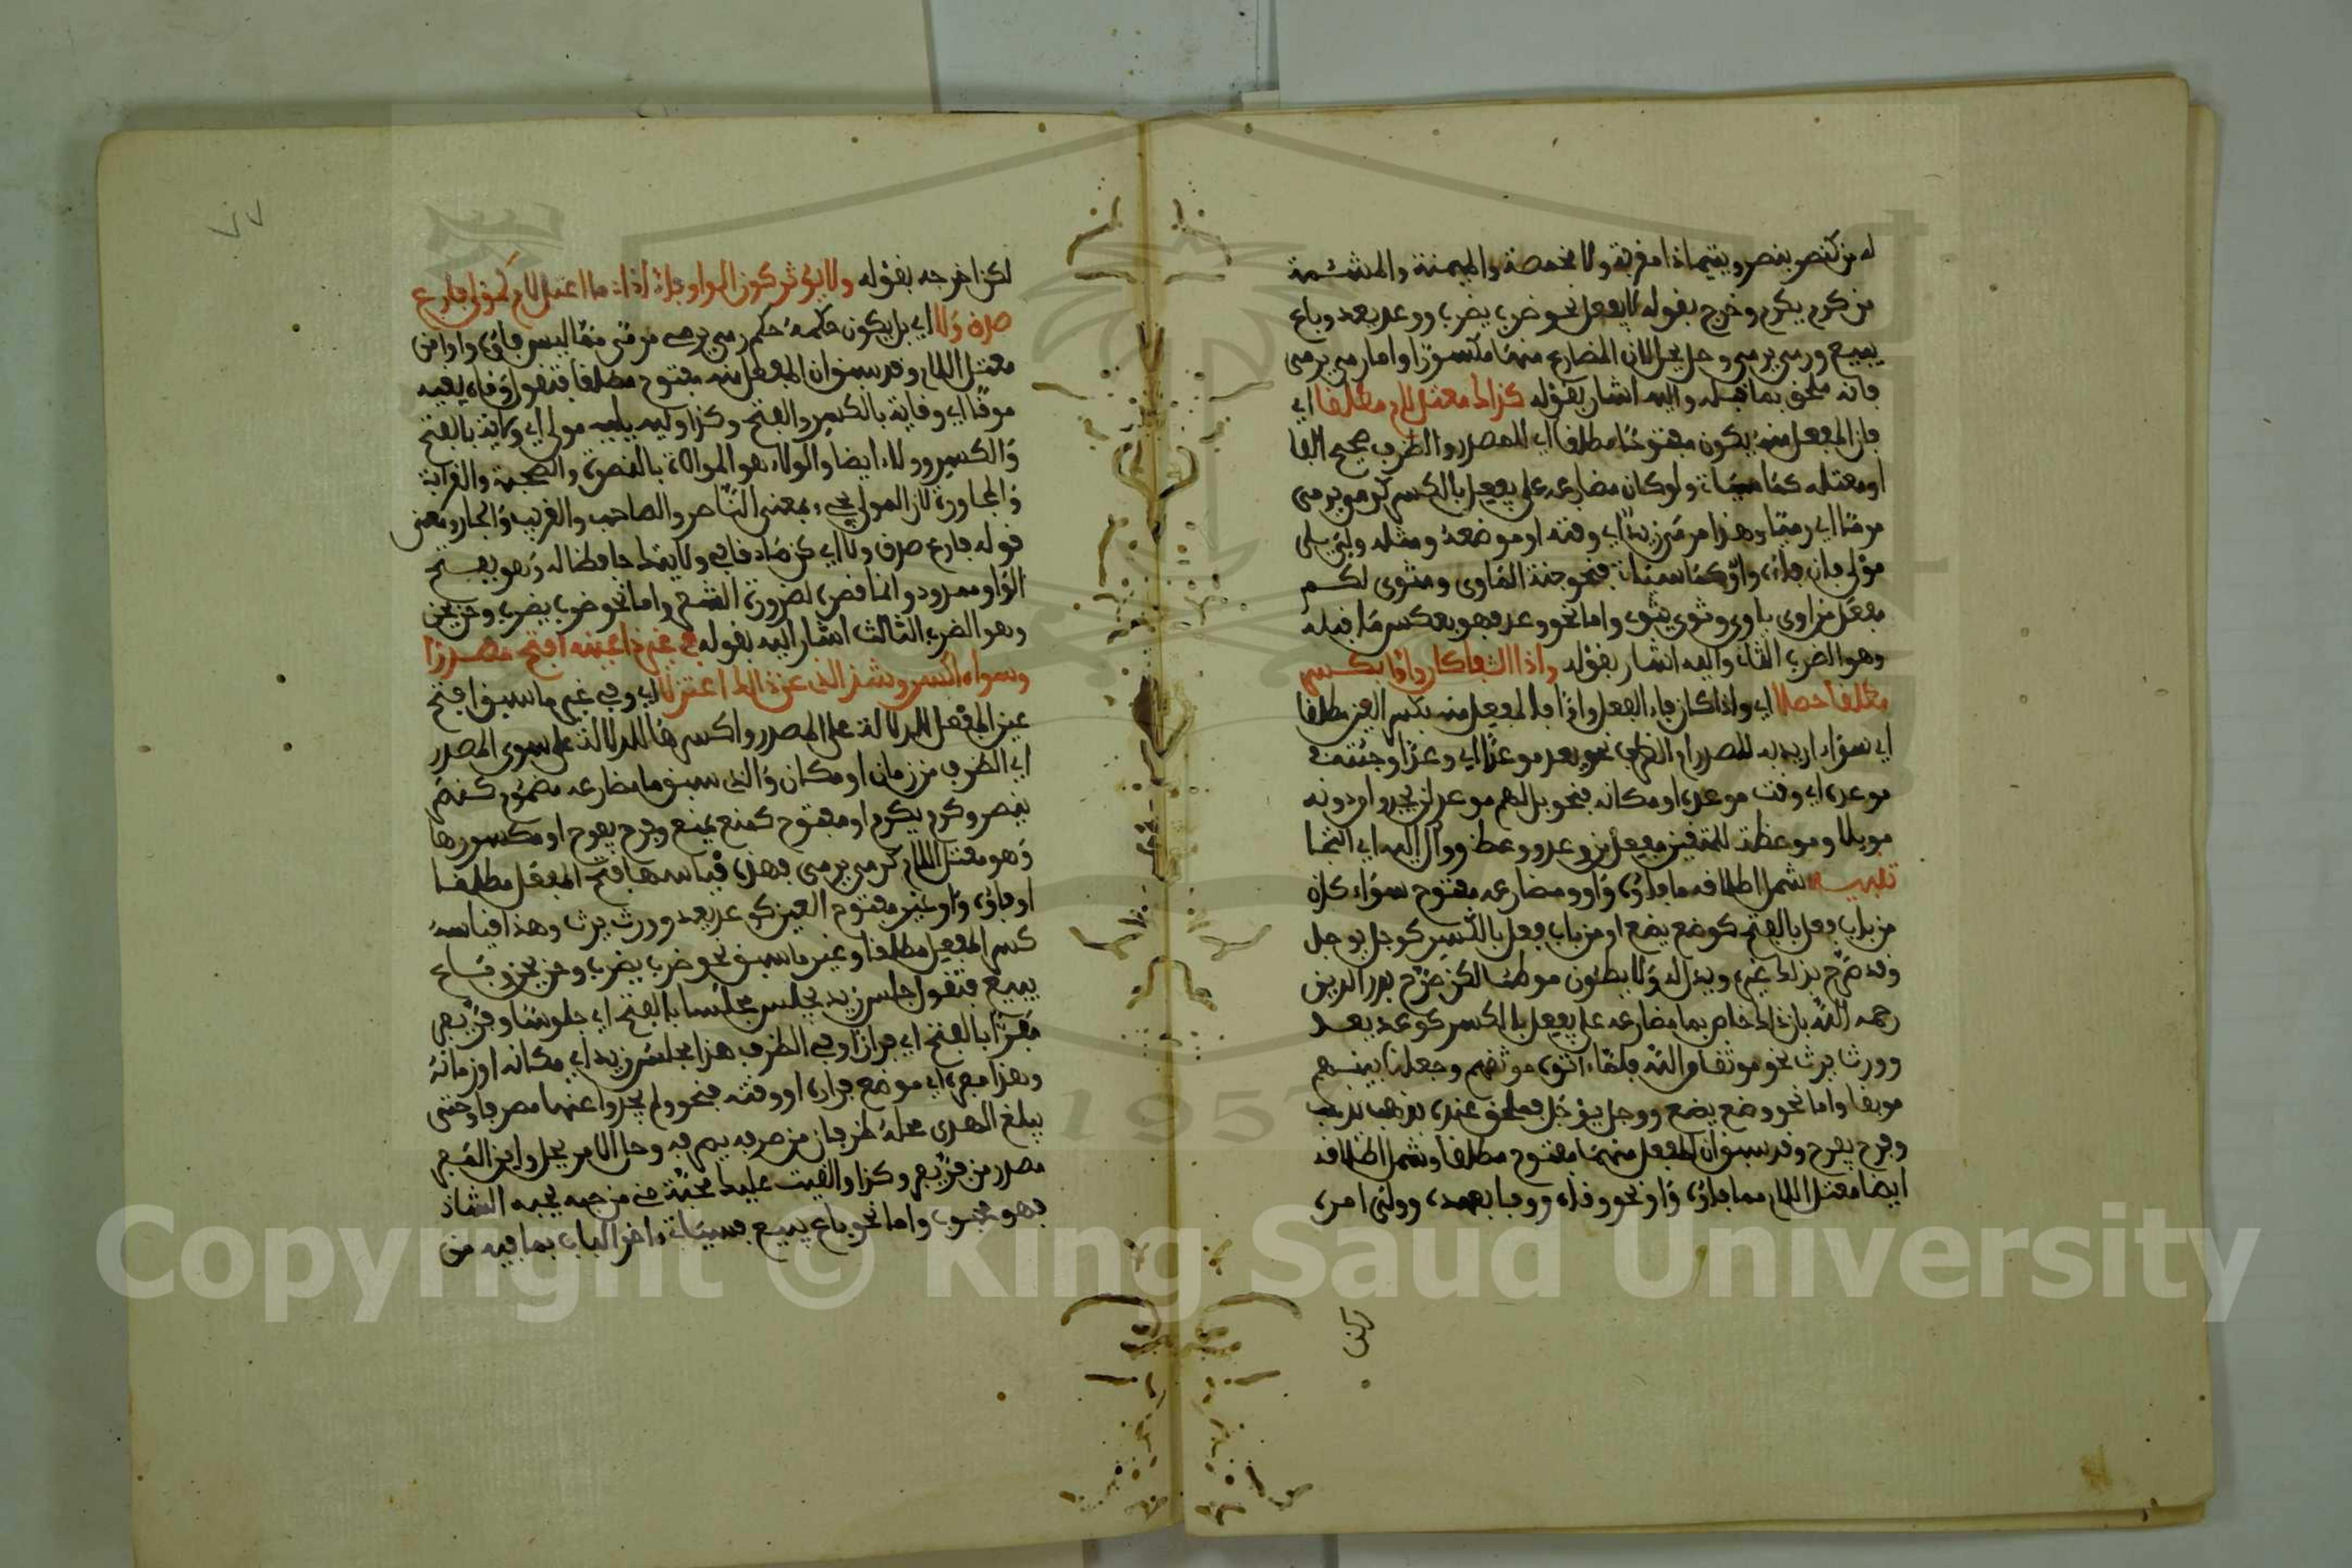 له من كنصر ينصر ويتيما ذا مقربة ولا مخمصة والميمنة والمشئمة
من كرم يكرم وخرج بقوله لا يفعل نحو ضرب يضرب ووعد يعد وباع
يبيع ورمى يرمي وحل يحل لان المضارع منها مكسورا واما رمى يرمي
فانه ملحق بما قبله واليه اشار بقوله كذاك معتل لام مطلقا اي
فان المفعل منه يكون مفتوحا مطلقا اي للمصدر والظرف صحيح الفا
او معتله كما سياتي ولو كان مضارعه على يفعل بالكسر كرمى يرمي
مرمًا اي رميا وهذا مرمى زيد اي وقته او موضعه ومثله ولي يلي
مولى فان فاءه واو كما سياتي فنحو جنة الماوى ومثوى لكم
مفعل من اوى ياوي وثوى يثوي واما نحو وعد فهو بعكس ما قبله
وهو الضرب الثاني واليه اشار بقوله واذا الفا كان واوا بكسر
مطلقا حصلا اي واذا كان فاء الفعل واوا فالمفعل منه بكسر العين مطلقا
اي سواء اريد به المصدر او الظرف نحو يعد موعدا اي وعدا وجئت في
موعده اي وقت موعده او مكانه فنحو بل لهم موعد لن يجدوا من دونه
موئلا وموعظة للمتقين مفعل من وعد ووعظ ووأل اليه اي التجا
تنبيه شمل اطلاقه ما فاؤه واو ومضارعه مفتوح سواء كان
من باب فعل بالفتح كوضع يضع او من باب فعل بالكسر كوجل يوجل
وقد صرح بذلك غيره ويدل له ولا يطئون موطئا لكن صرح بدر الدين
رحمه الله بان ذلك خاص بما مضارعه على يفعل بالكسر كوعد يعد
وورث يرث نحو موثقا من الله فلما اتوه موثقهم وجعلنا بينهم
موبقا واما نحو وضع يضع ووجل يوجل فملحق عنده بذهب يذهب
وفرح يفرح وقد سبق ان المفعل منهما مفتوح مطلقا وشمل اطلاقه
ايضا معتل اللام مما فاؤه واو نحو وقاه ووفا بعهده وولي امره
لكن
لكن اخرجه بقوله ولا يؤثر كون الواو فاء اذا ما اعتل لام كمولى فارع
صدق ولا اي بل يكون حكمه حكم رمى يرمي مرمى مما ليس فاؤه واوا من
معتل اللام وقد سبق ان المفعل منه مفتوح مطلقا فتقول وقاه يقيه
موقا اي وقاية بالكسر والفتح وكذا وليه يليه مولى اي ولاية بالفتح
والكسر وولاء ايضا والولاء هو الموالاة بالنصرة والصحبة والقرابة
والمجاورة لان المولى يجيء بمعنى الناصر والصاحب والقريب والجار ومعنى
قوله فارع صدق ولا اي كن صادقا في ولاية حافظا له وهو بفتح
الواو ممدود وانما قصره لضرورة الشعر واما نحو ضرب يضرب وفر يفر
وهو الضرب الثالث اشار اليه بقوله في غير ذا عينه افتح مصدرا
وسواه اكسر وشذ الذي عن ذلك اعتزلا اي وفي غير ما سبق افتح
عين المفعل للدلالة على المصدر واكسرها للدلالة على سوى المصدر
اي الظرف من زمان او مكان والذي سبق ما مضارعه مضموم كنصر
ينصر وكرم يكرم او مفتوح كمنع يمنع وفرح يفرح او مكسورها
وهو معتل اللام كرمى يرمي فهذه قياسها فتح المفعل مطلقا
او فاؤه واو غير مفتوح العين كوعد يعد وورث يرث وهذا قياسه
كسر المفعل مطلقا وغير ما سبق نحو ضرب يضرب وفر يفر وباع
يبيع فتقول جلس زيد يجلس مجلسا بالفتح اي جلوسا وفر يفر
مفرا بالفتح اي فرارا وفي الظرف هذا مجلس زيد اي مكانه او زمانه
وهذا مفره اي موضع فراره او وقته فنحو ولم يجدوا عنها مصرفا وحتى
يبلغ الهدى محله ظرفان من صرفه يصرفه وحل الامر يحل واين المفر
مصدر من فر يفر وكذا والقيت عليك محبة مني من حبه يحبه الشاذ
فهو محبوب واما نحو باع يبيع فسياتي اخر الباب بما فيه من